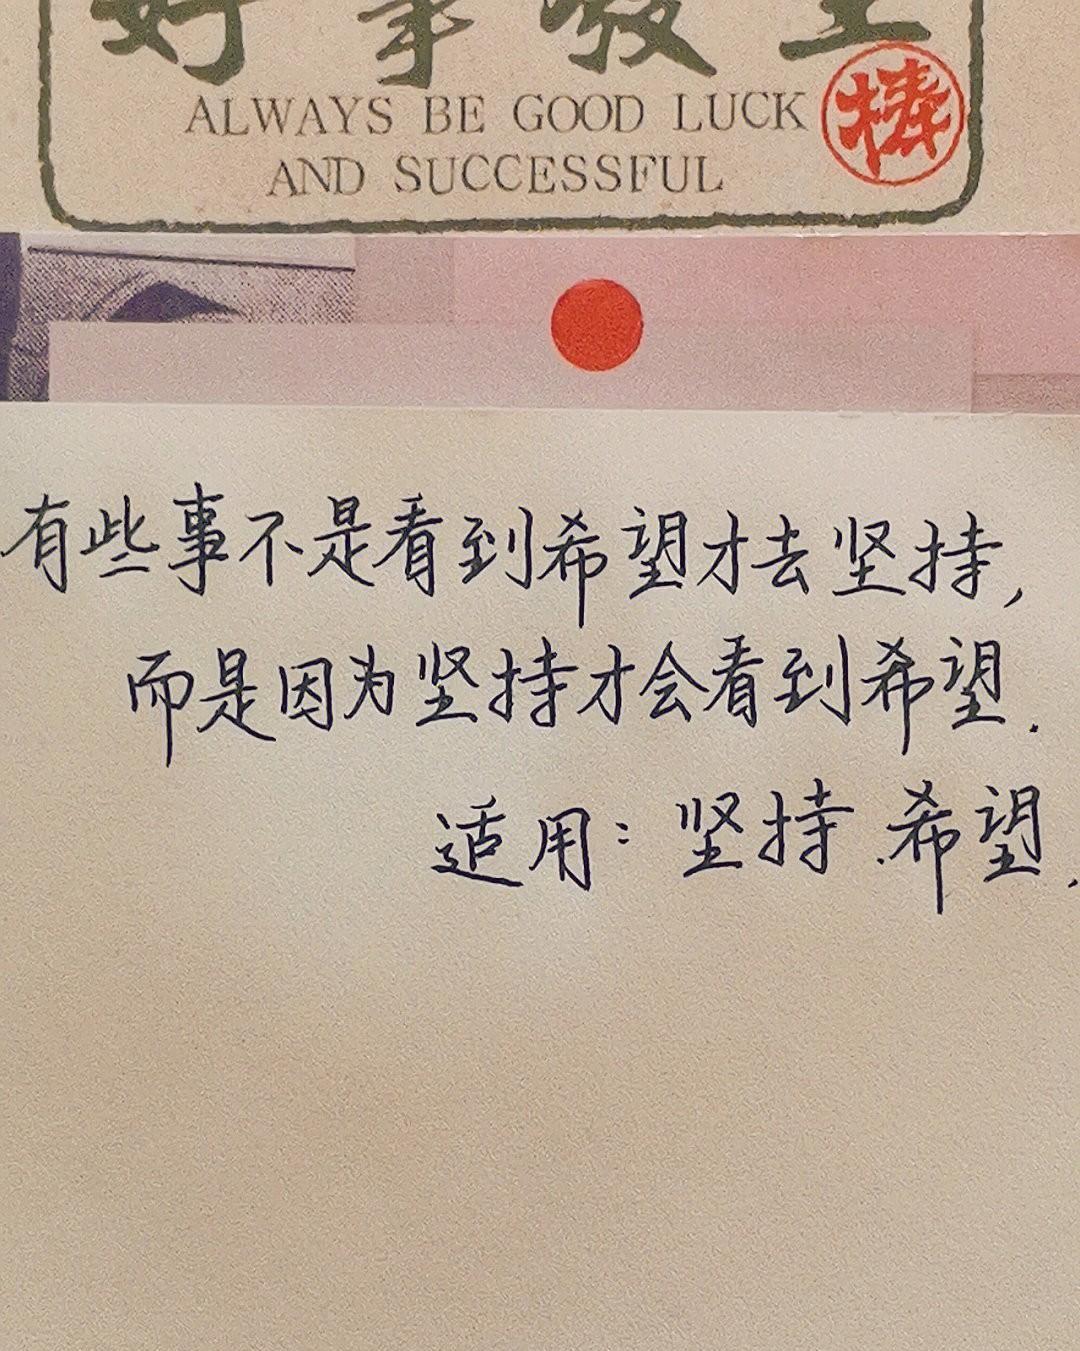 好事發生
ALWAYS BE GOOD LUCK
AND SUCCESSFUL
有些事不是看到希望才去坚持,
而是因为坚持才会看到希望.
适用:坚持.希望.